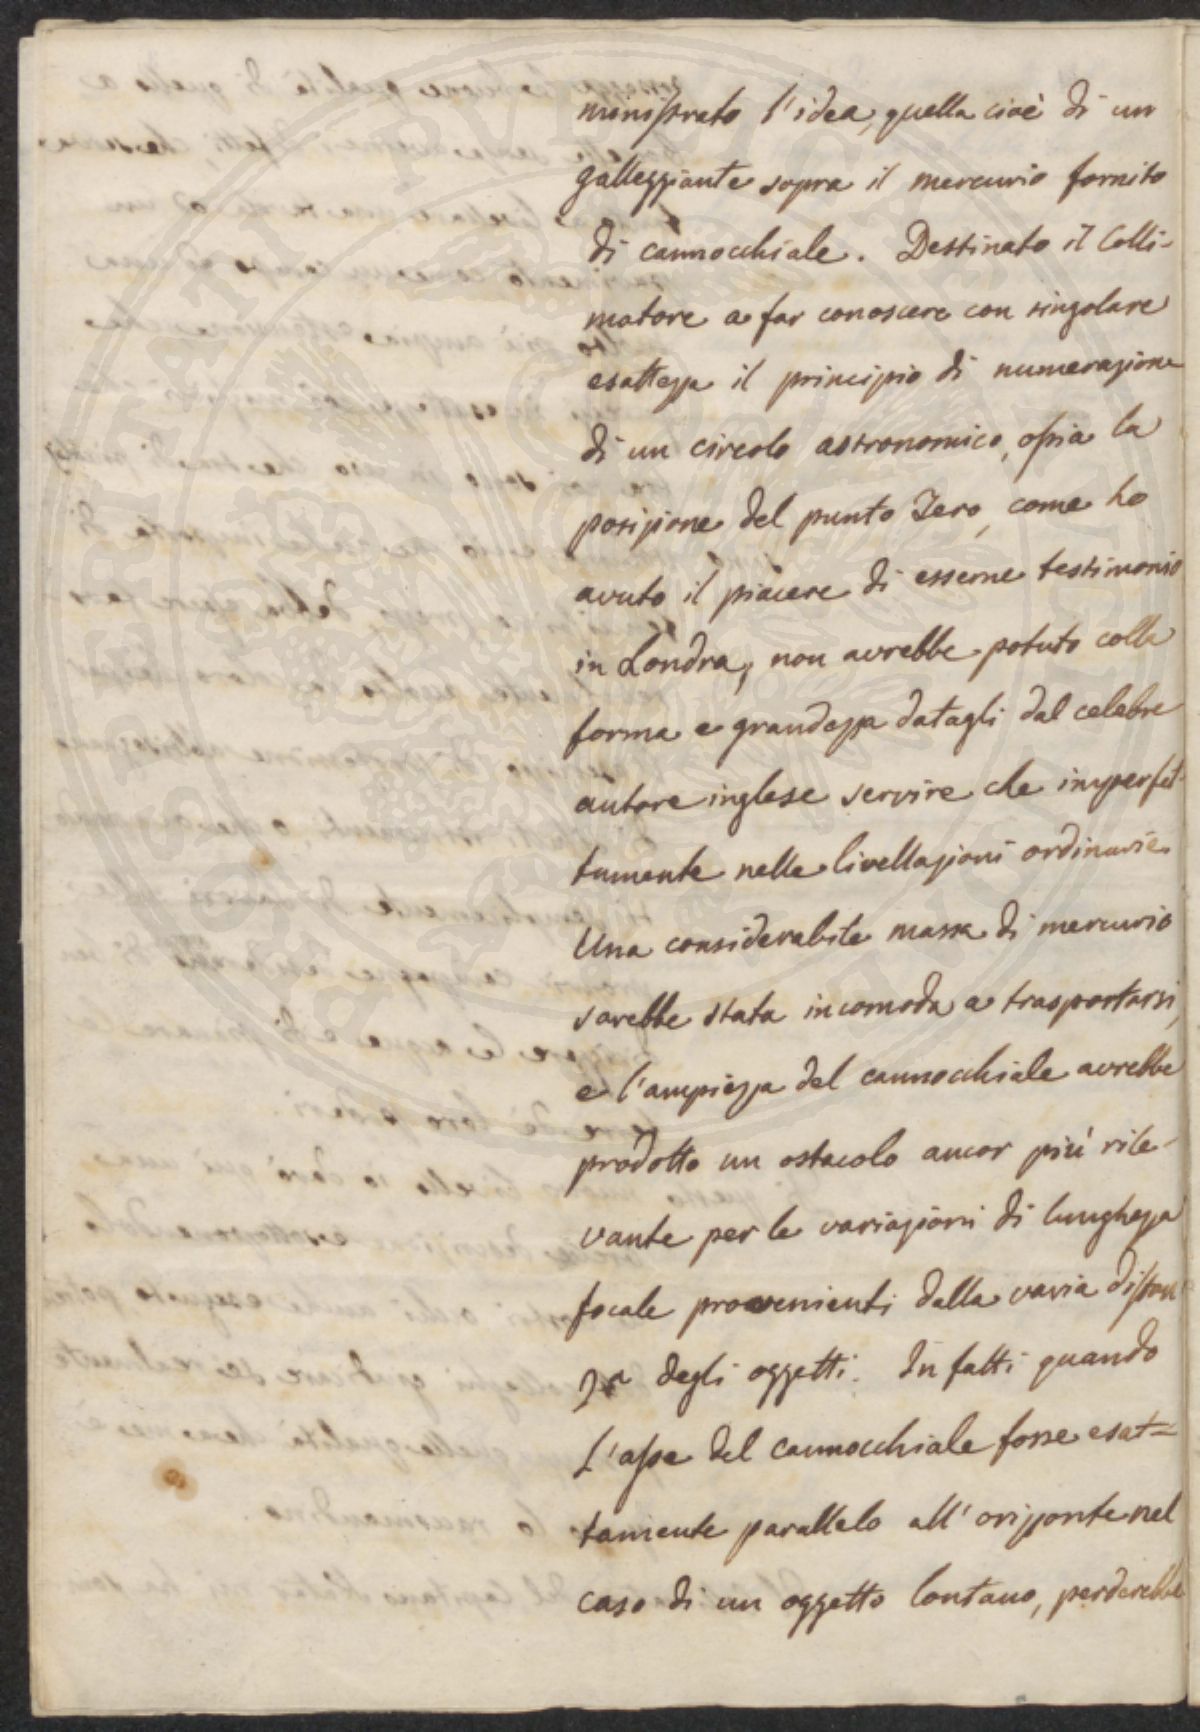 ministrato l'idea, quella cioè di un
galleggiante sopra il mercurio fornito
di cannocchiale. Destinato il Colli-
matore a far conoscere con singolare
esattezza il principio di numerazione
di un circolo astronomico, ossia la
posizione del punto Zero, come ho
avuto il piacere di esserne testimonio
in Londra, non avrebbe potuto colla
forma e grandezza datagli dal celebre
autore inglese servire che imperfet-
tamente nelle livellazioni ordinarie.
Una considerabile massa di mercurio
sarebbe stata incomoda a trasportarsi,
e l'ampiezza del cannocchiale avrebbe
prodotto un ostacolo ancor più rile-
vante per le variazioni di lunghezza
focale provenienti dalla varia distan
za degli oggetti. In fatti quando
L'asse del cannocchiale fosse esat=
tamente parallelo all'orizzonte nel
caso di un oggetto lontano, perderebbe